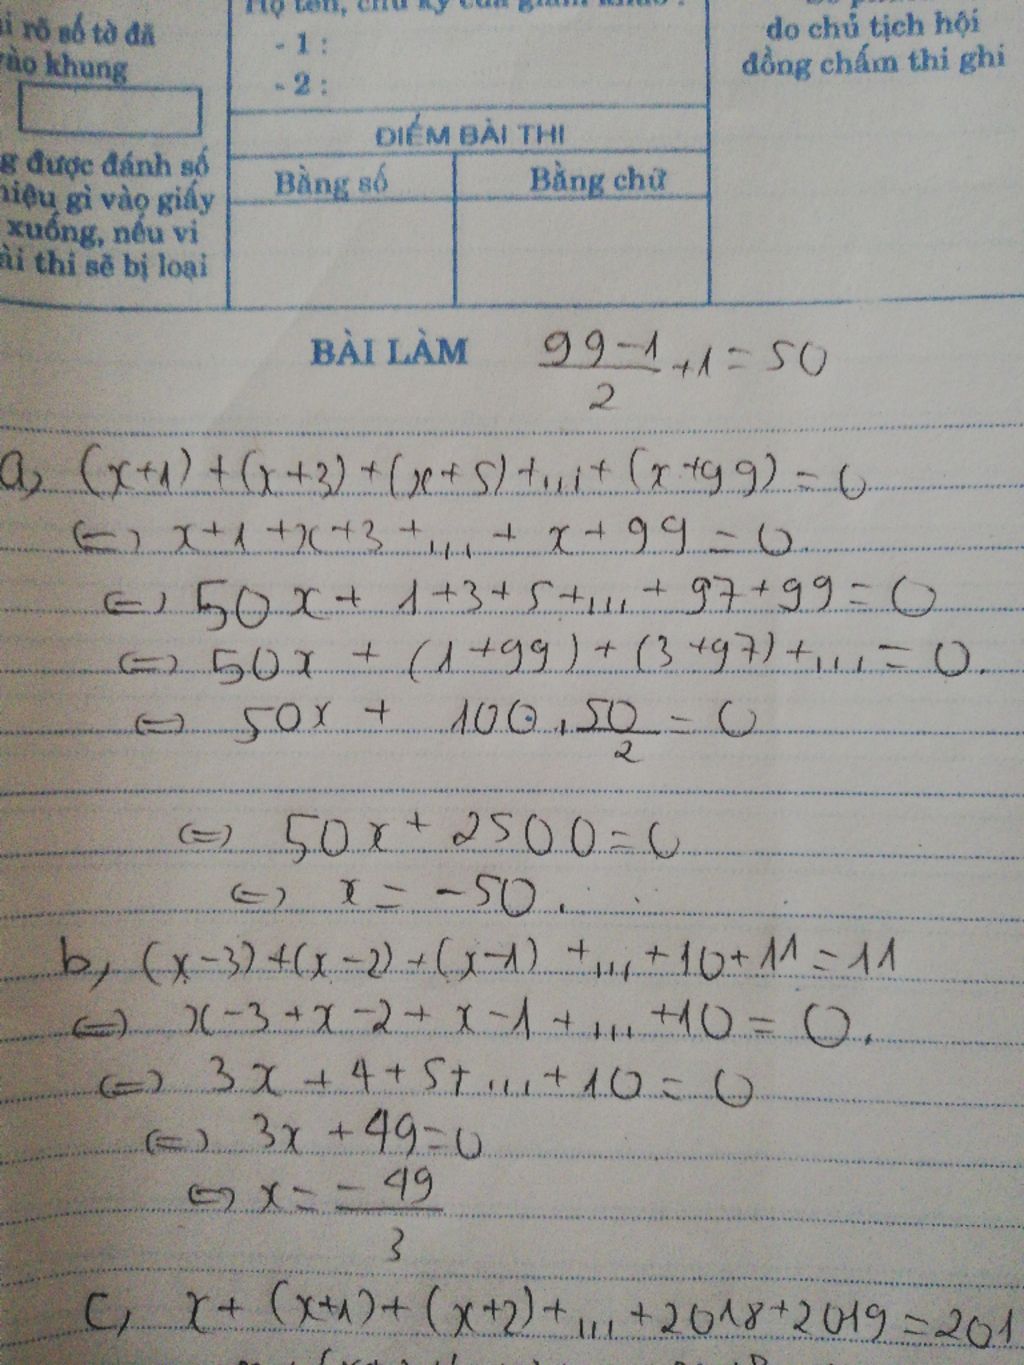 rõ số tờ đã
vào khung
Họ tên, chữ ký của giám khảo :
- 1 :
- 2 :
do chủ tịch hội
đồng chấm thi ghi
ĐIỂM BÀI THI
Bằng số
Bằng chữ
được đánh số
hiệu gì vào giấy
xuống, nếu vi
bài thi sẽ bị loại
BÀI LÀM
\frac{99-1}{2}+1=50
a, (x+1)+(x+3)+(x+5)+...+(x+99)=0
<=> x+1+x+3+...+x+99=0.
<=> 50x+1+3+5+...+97+99=0
<=> 50x+(1+99)+(3+97)+...=0.
<=> 50x+100.\frac{50}{2}=0
<=> 50x+2500=0
<=> x=-50.
b, (x-3)+(x-2)+(x-1)+...+10+11=11
<=> x-3+x-2+x-1+...+10=0.
<=> 3x+4+5+...+10=0
<=> 3x+49=0
<=> x=\frac{-49}{3}
c, x+(x+1)+(x+2)+...+2018+2019=201